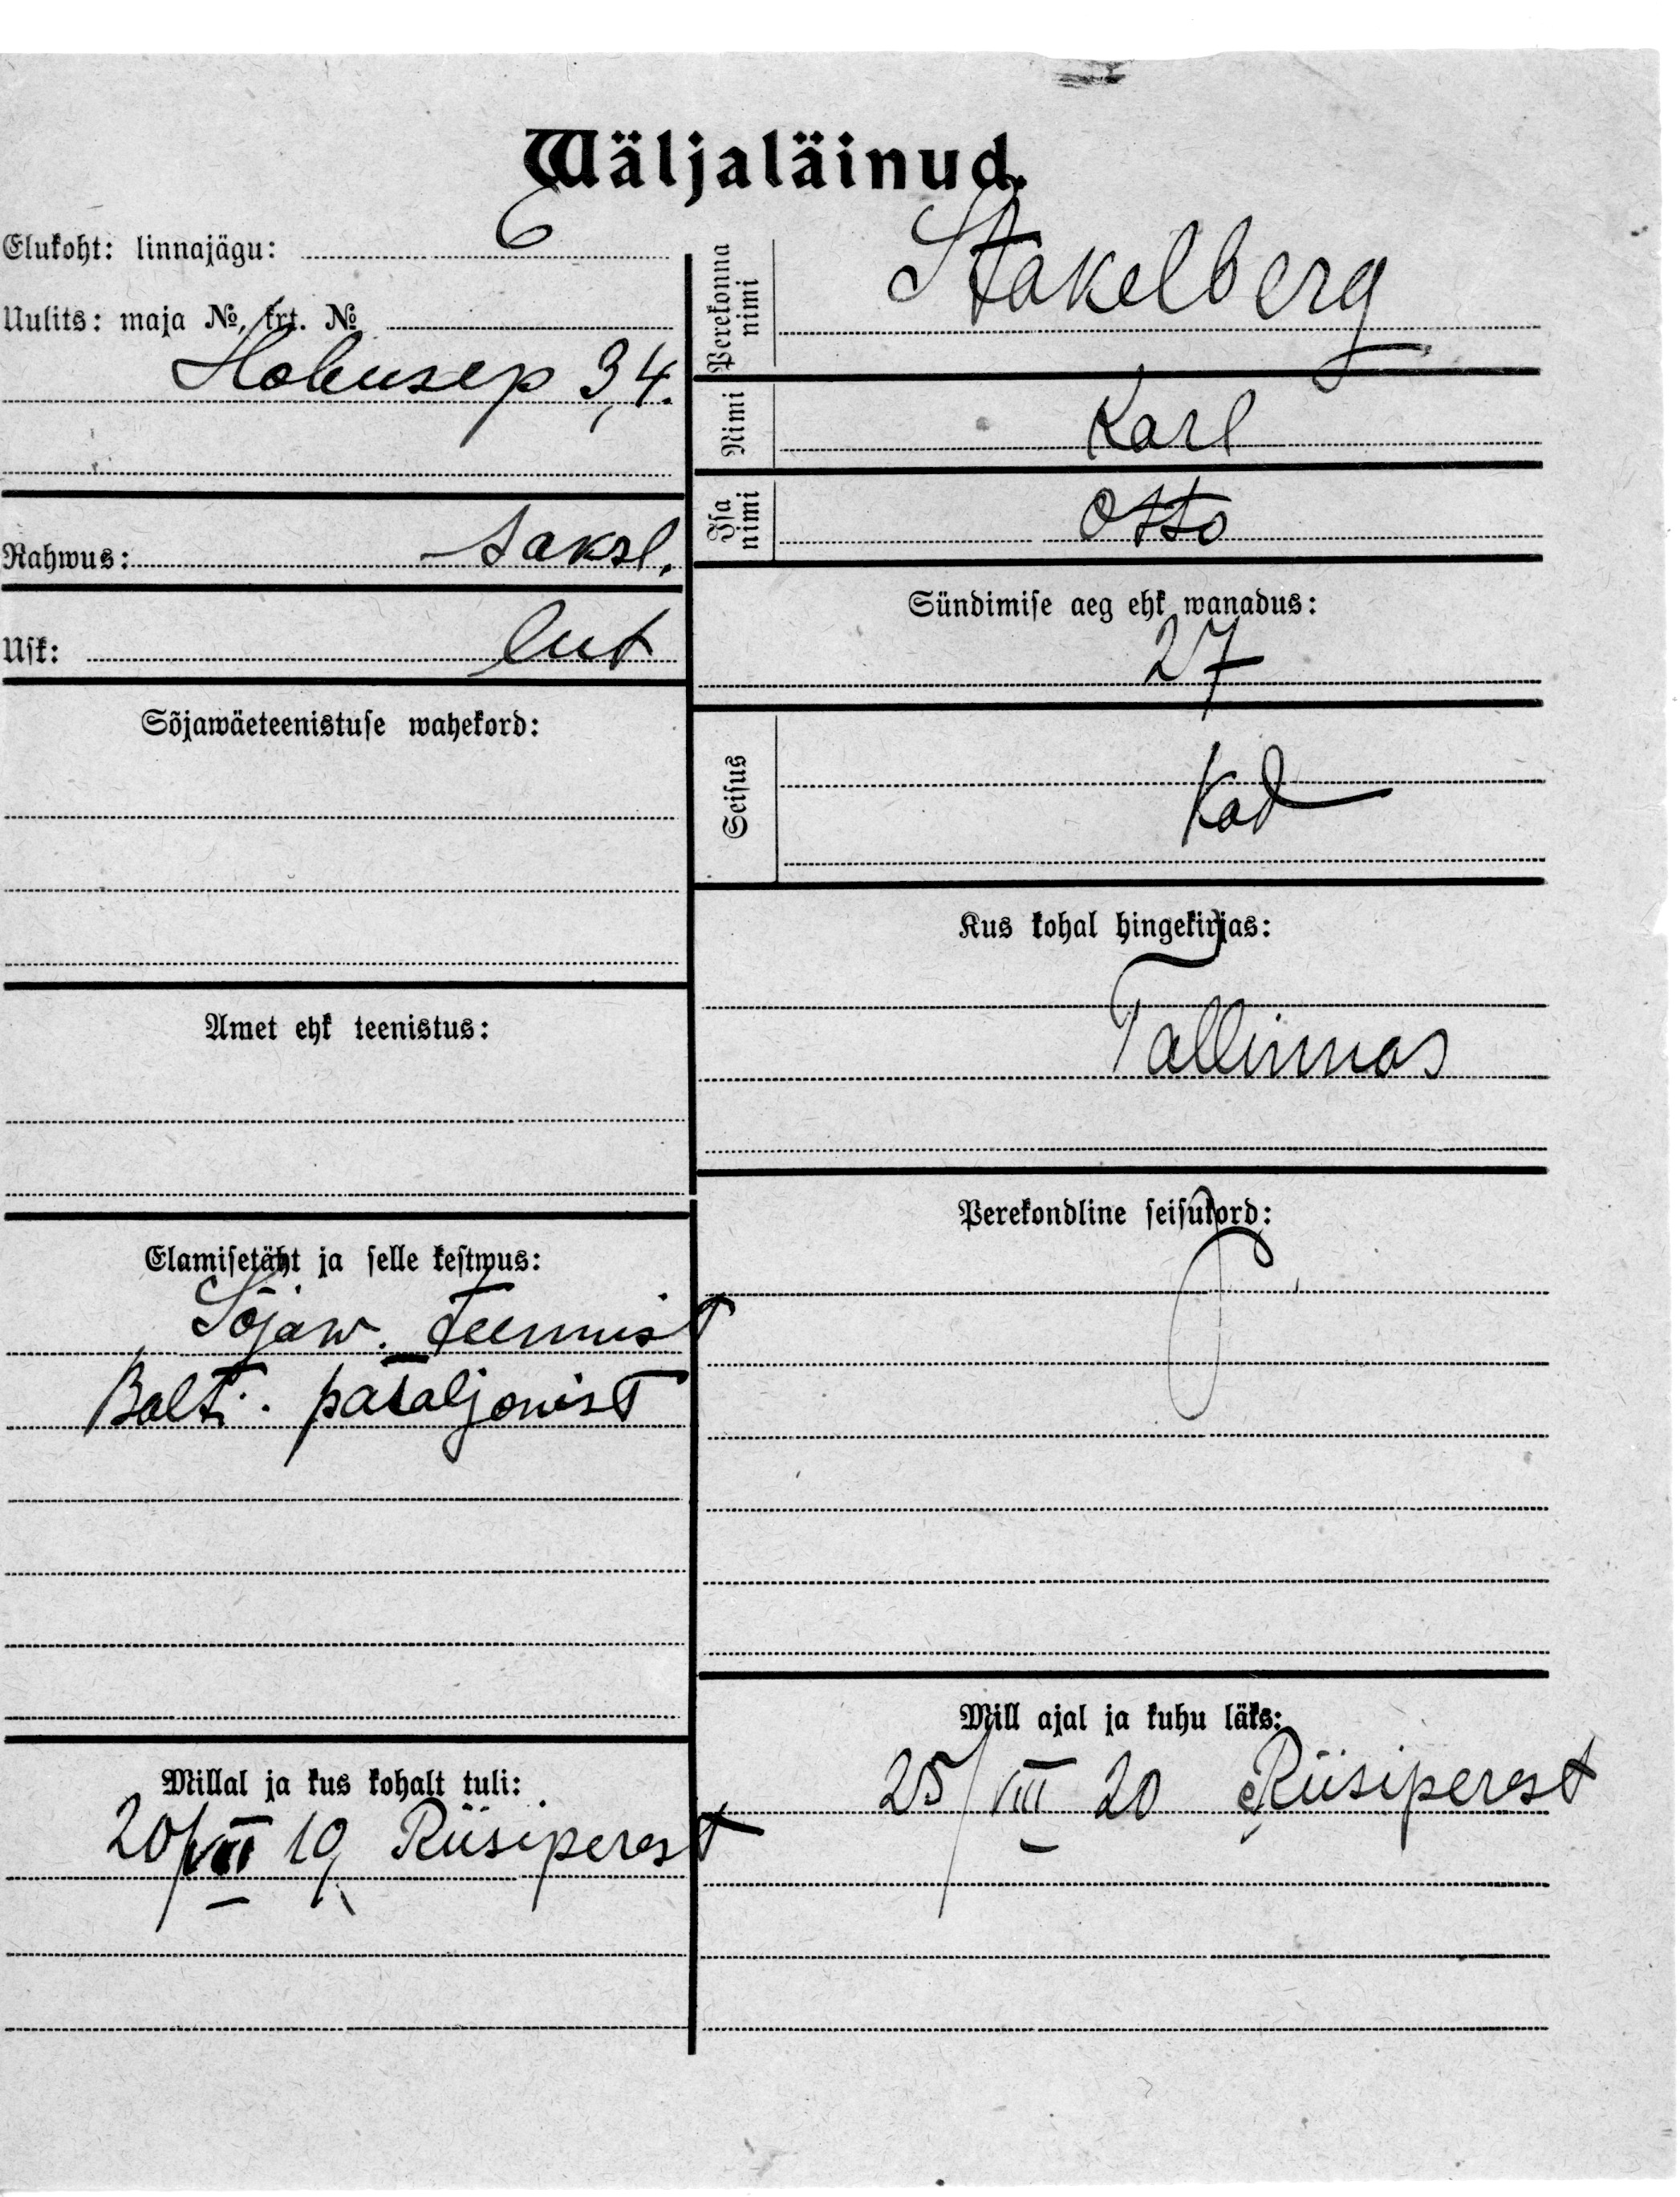 Wäljaläinud.
Elukoht: linnajägu: 6
Uulits: maja №, krt. №
Hobusep 3, 4.
Rahwus: saksl.
Usk: lut
Sõjawäeteenistuse wahekord:
Amet ehk teenistus:
Elamisetäht ja selle kestwus:
Sõjaw. teenist
Balti. pataljonist
Millal ja kus kohalt tuli:
20/VII 19 Riisiperest
Perekonna nimi Stakelberg
Nimi Karl
Isa nimi Otto
Sündimise aeg ehk wanadus:
27
Seisus
Kus kohal hingekirjas:
Tallinnas
Perekondline seisukord:
Mill ajal ja kuhu läks:
25/VIII 20 Riisiperest